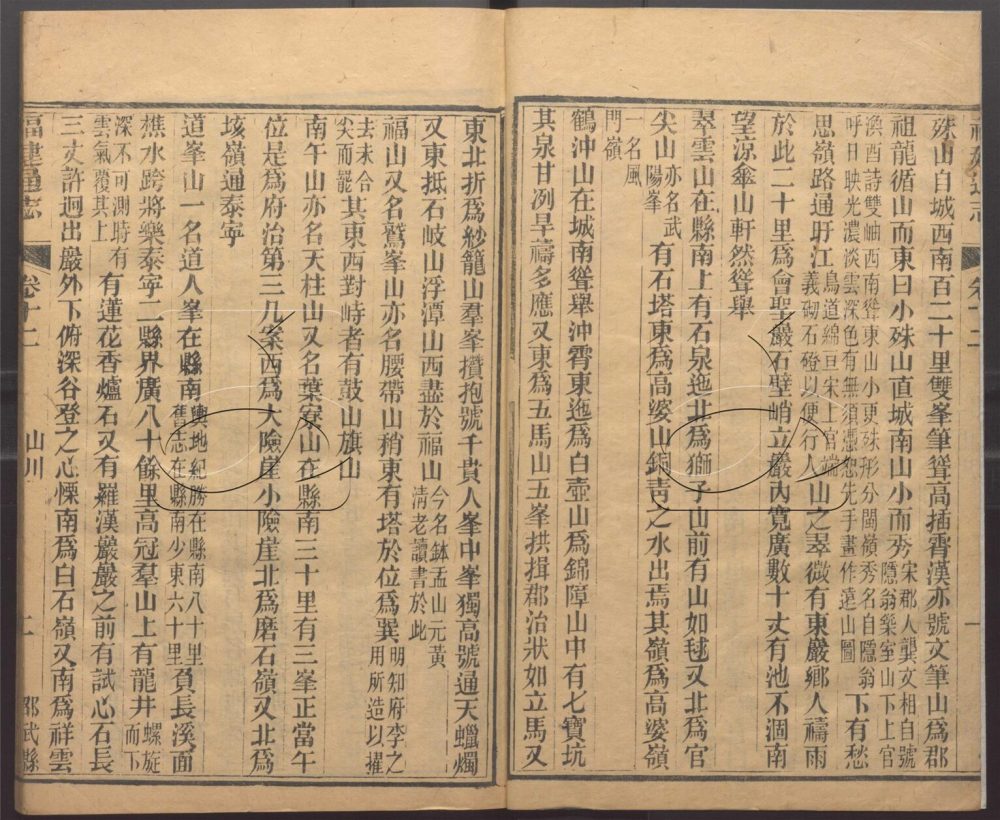 殊山自城西南百二十里雙峯筆聳高插霄漢亦號文筆山爲郡
祖龍循山而東曰小殊山直城南山小而秀宋郡人龔文相自號隱翁築室山下上官
渙酉詩雙岫西南聳東山小更殊形分閩嶺秀名自隱翁
呼日映光濃淡雲深色有無須憑恕先手畫作遠山圖下有愁
思嶺路通旴江鳥道綿亘宋上官端義砌石磴以便行人山之翠微有東巖鄉人禱雨
於此二十里爲會聖巖石壁峭立巖內寬廣數十丈有池不涸南
望涼傘山軒然聳舉
翠雲山在縣南上有石泉迤北爲獅子山前有山如毬又北爲官
尖山亦名武陽峯有石塔東爲高婆山銅青之水出焉其嶺爲高婆嶺
一名風門嶺
鶴沖山在城南聳舉沖霄東迤爲白壺山爲錦障山中有七寶坑
其泉甘冽旱禱多應又東爲五馬山五峯拱揖郡治狀如立馬又
東北折爲紗籠山羣峯攢抱號千貴人峯中峯獨高號通天蠟燭
又東抵石岐山浮潭山西盡於福山今名鉢盂山元黃清老讀書於此
福山又名鷲峯山亦名腰帶山稍東有塔於位爲巽明知府李之用所造以摧
去未合尖而罷其東西對峙者有鼓山旗山
南午山亦名天柱山又名葉寮山在縣南三十里有三峯正當午
位是爲府治第三几案西爲大險崖小險崖北爲磨石嶺又北爲
垓嶺通泰寧
道峯山一名道人峯在縣南輿地紀勝在縣南八十里舊志在縣南少東六十里負長溪面
樵水跨將樂泰寧二縣界廣八十餘里高冠羣山上有龍井螺旋而下
深不可測時有雲氣覆其上有蓮花香爐石又有羅漢巖巖之前有試心石長
三丈許迥出巖外下俯深谷登之心慄南爲白石嶺又南爲祥雲
福建通志
卷十二
山川
二
邵武縣